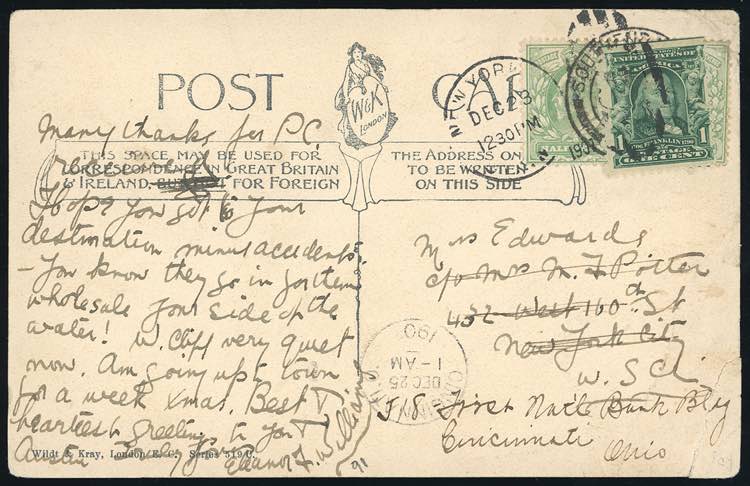 POST CARD
W&K
LONDON
THIS SPACE MAY BE USED FOR
CORRESPONDENCE IN GREAT BRITAIN
& IRELAND, FOR FOREIGN
THE ADDRESS ON
TO BE WRITTEN
ON THIS SIDE
Many thanks for P.C.
I hope you got to your
destination minus accidents.
- You know they go in for them
wholesale your side of the
water! W. Cliff very quiet
now. Am going up to town
for a week Xmas. Best &
heartiest greetings to you &
Austin
Eleanor F. Williams
91
Wildt & Kray, London E.C. Series
NEW YORK
DEC 23
1230 PM
HALF
UNITED STATES OF
AMERICA
FRANKLIN
1 POSTAGE 1
ONE CENT
Mrs Edwards
c/o Mrs M. F. Potter
432 West 160th St
New York City
U.S.A
718 First Nat'l Bank Bldg
Cincinnati
Ohio
DEC 25
1-AM
190